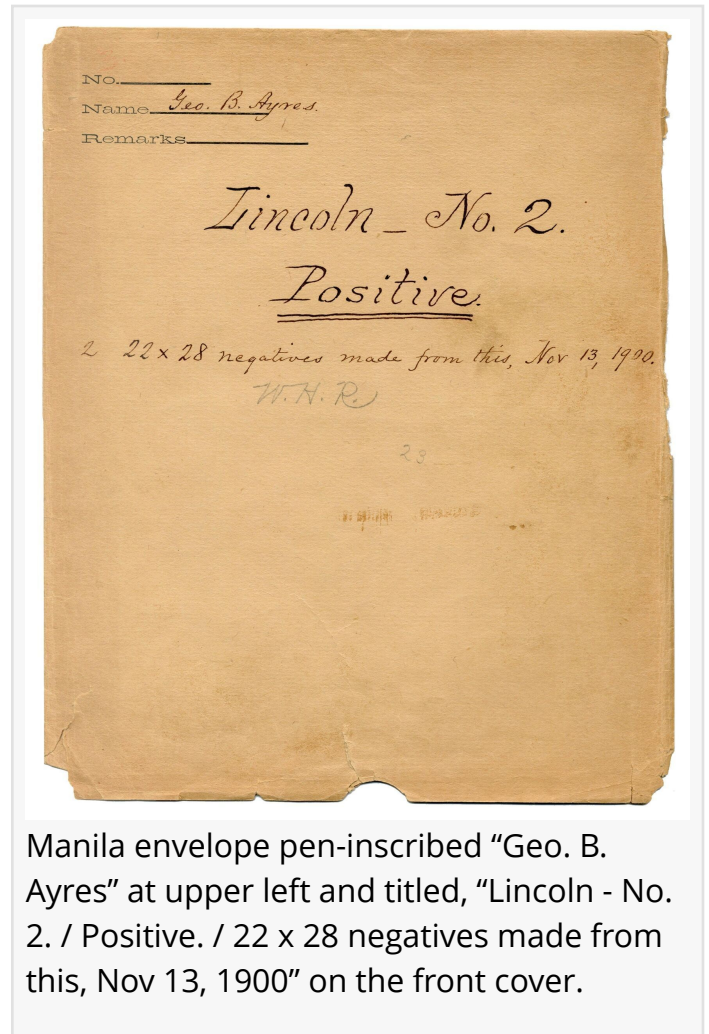 No.
Name Geo. B. Ayres.
Remarks
Lincoln – No. 2.
Positive.
2 22 x 28 negatives made from this, Nov 13, 1900.
W. H. R.
23
Manila envelope pen-inscribed “Geo. B.
Ayres” at upper left and titled, “Lincoln - No.
2. / Positive. / 22 x 28 negatives made from
this, Nov 13, 1900” on the front cover.